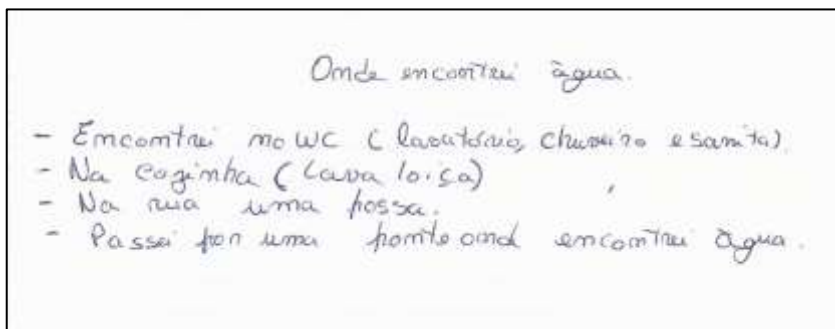 Onde encontrei àgua.
- Encontrei no WC (lavatório, chuveiro e sanita).
- Na cozinha (Lava loiça)
- Na rua uma possa.
- Passei por uma ponte ond encontrei àgua.